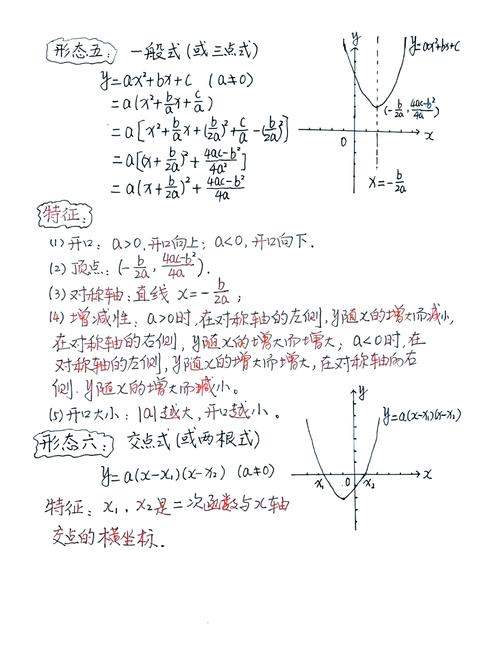 形态五：一般式(或三点式)
y=ax²+bx+c (a≠0)
=a(x²+b/a x+c/a)
=a[x²+b/a x+(b/2a)²+c/a-(b/2a)²]
=a[(x+b/2a)²+4ac-b²/4a²]
=a(x+b/2a)²+4ac-b²/4a
y
y=ax²+bx+c
(-b/2a, 4ac-b²/4a)
0
x
x=-b/2a
特征：
(1)开口：a>0,开口向上；a<0,开口向下.
(2)顶点：(-b/2a, 4ac-b²/4a).
(3)对称轴：直线 x=-b/2a；
(4)增减性：a>0时,在对称轴的左侧,y随x的增大而减小,
在对称轴的右侧,y随x的增大而增大；a<0时,在
对称轴的左侧,y随x的增大而增大,在对称轴的右
侧.y随x的增大而减小。
(5)开口大小：|a|越大,开口越小。
形态六：交点式(或两根式)
y=a(x-x₁)(x-x₂) (a≠0)
特征：x₁,x₂是二次函数与x轴
交点的横坐标.
y
y=a(x-x₁)(x-x₂)
x₁
0
x₂
x